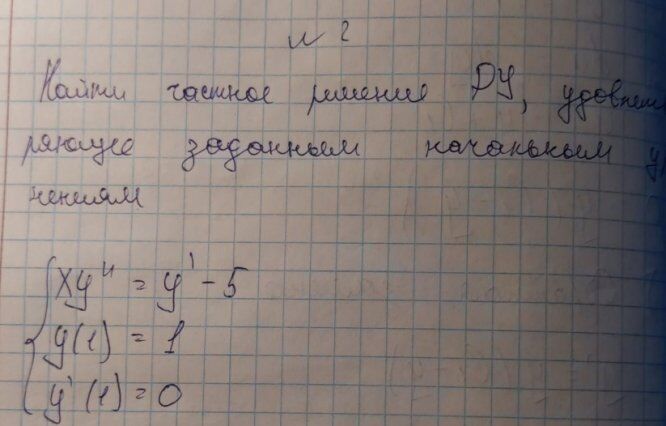 № 2
Найти частное решение ДУ, удовлет
ряющее заданным начальным у
нениям
xy" = y' - 5
y(1) = 1
y'(1) = 0